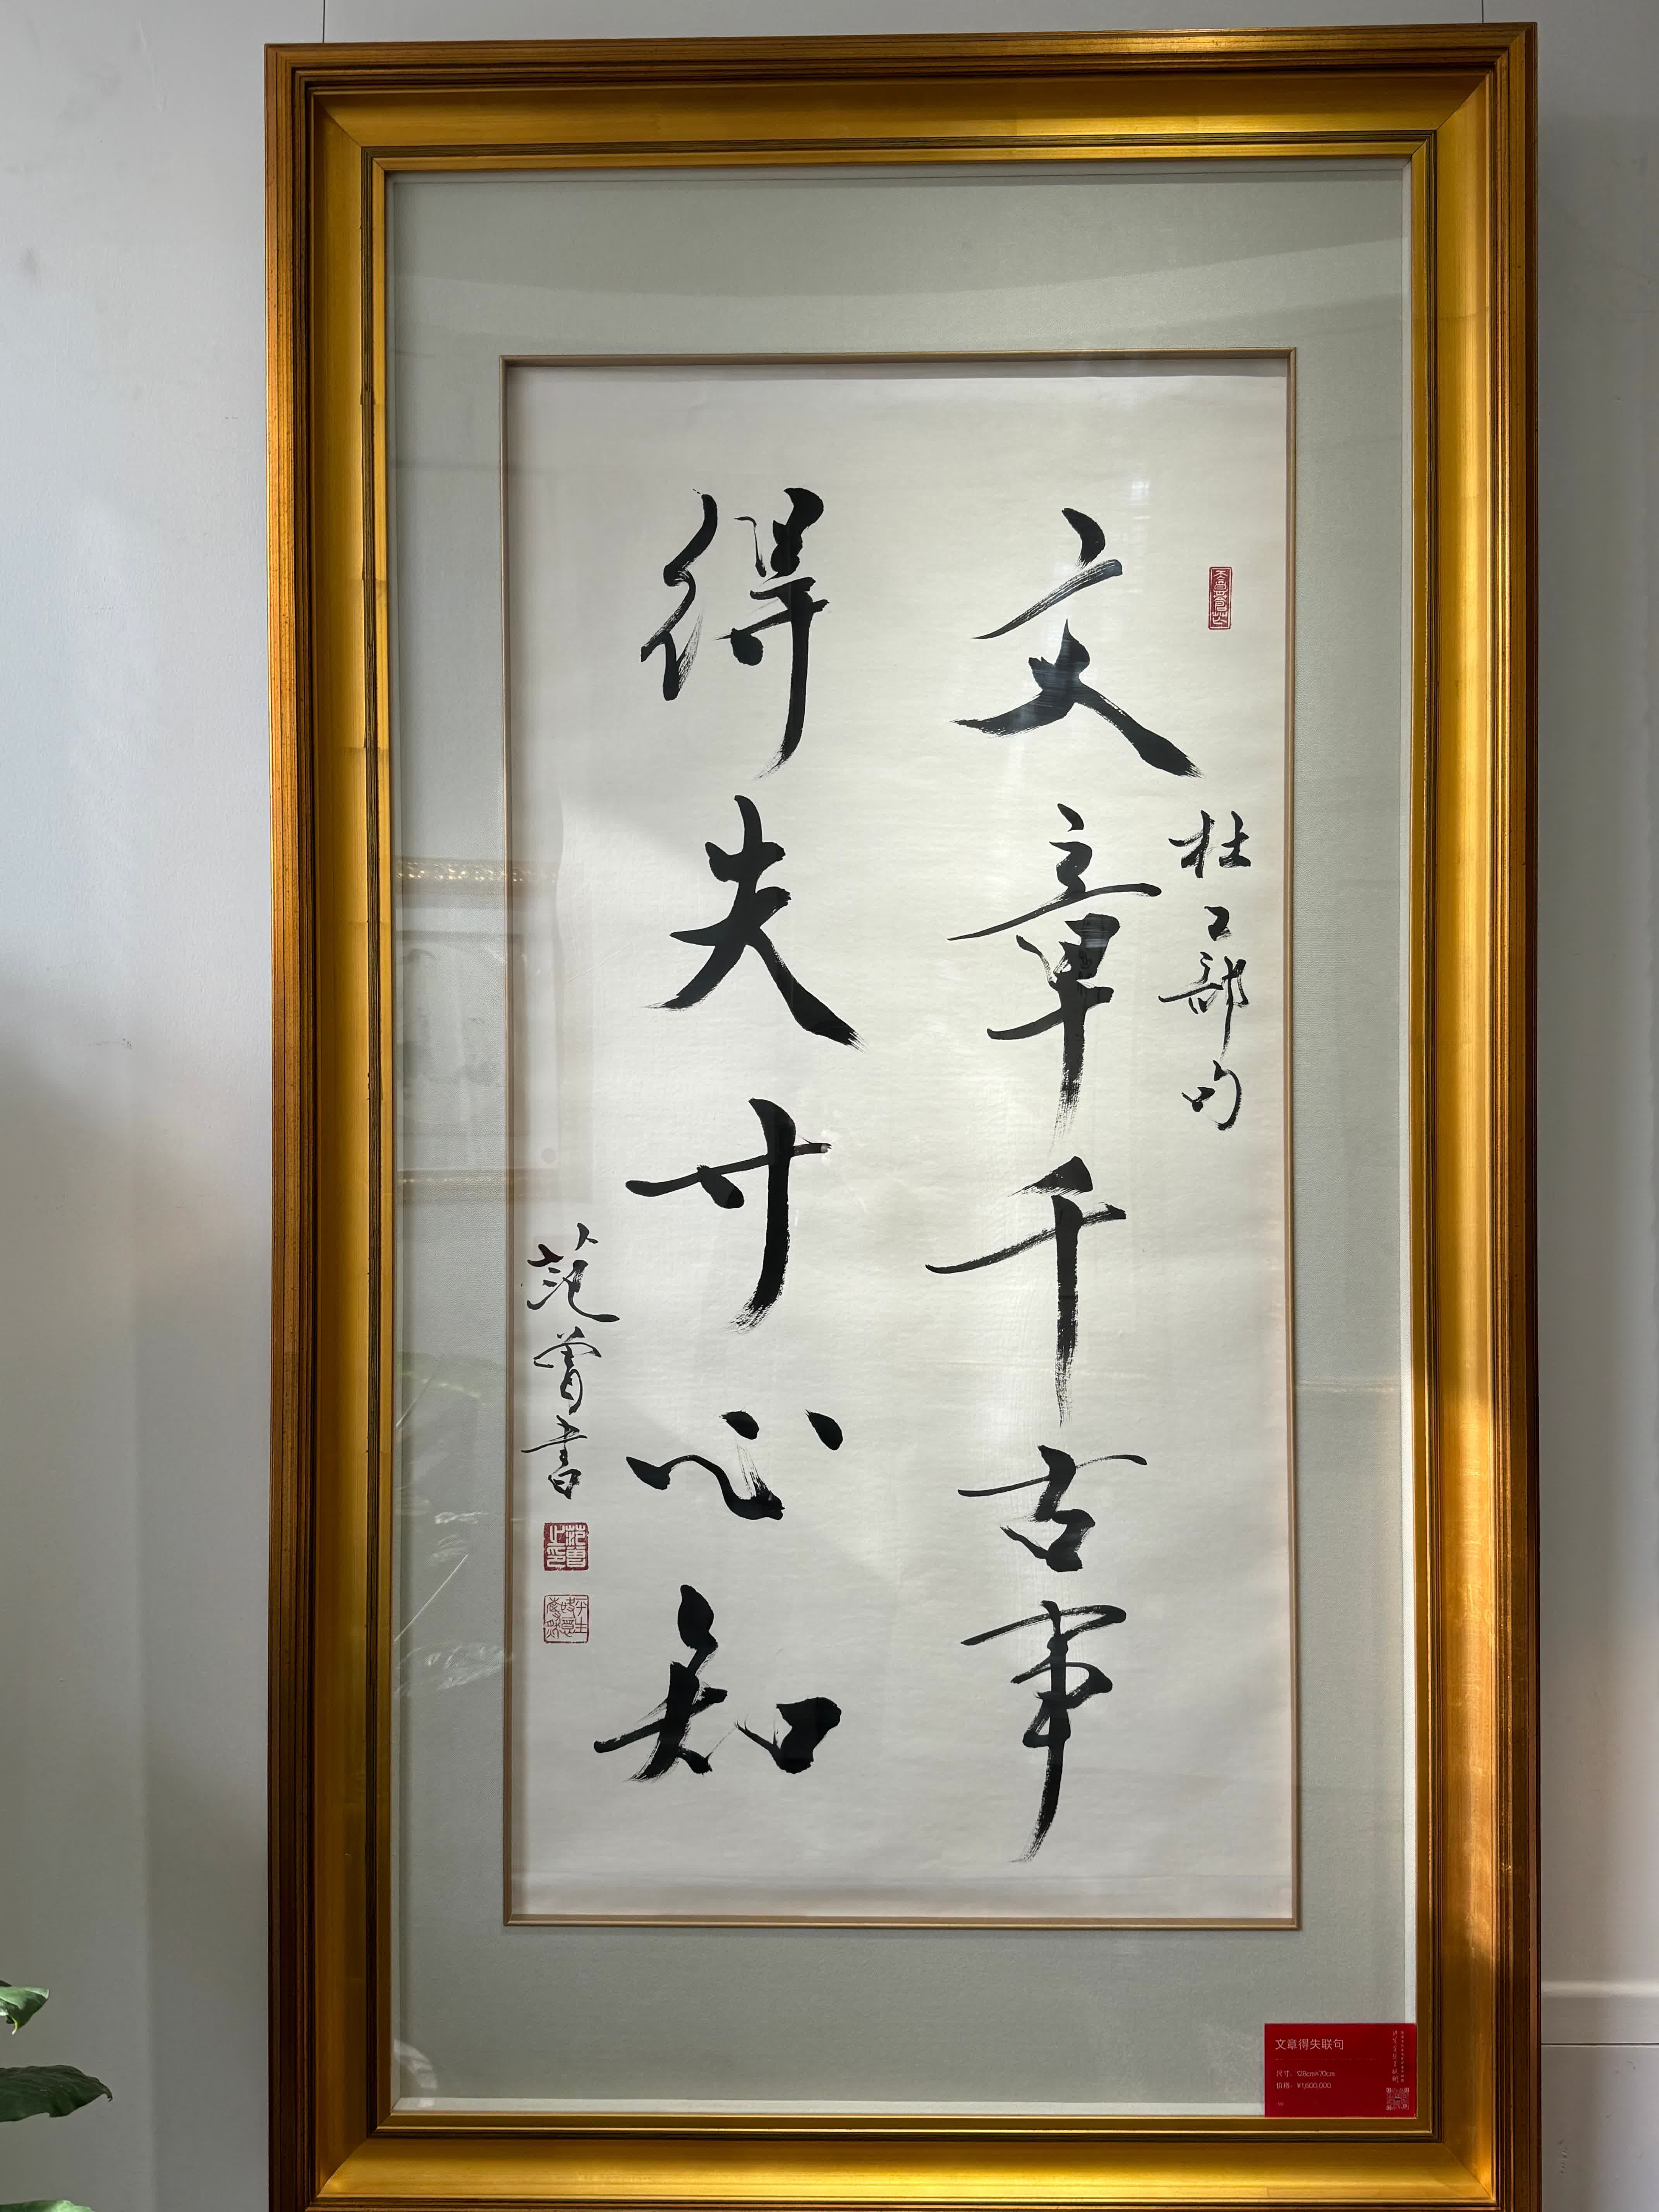 文章千古事
杜工部句
得失寸心知
范曾書
范曾之印
文章得失联句
尺寸：128cm×70cm
价格：¥1,600,000